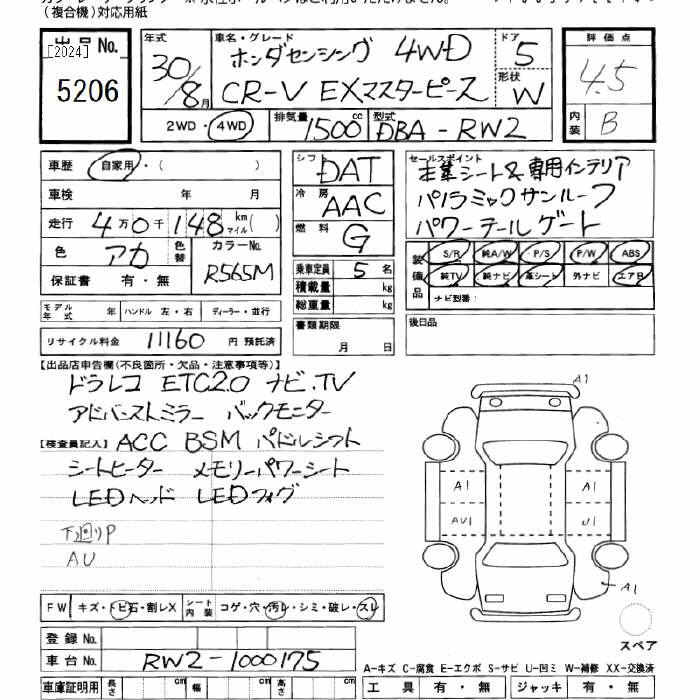 (複合機)対応用紙
出品No.
[2024]
5206
年式
30/8月
車名・グレード
ホンダセンシング 4WD
CR-V EXマスターピース
ドア
5
形状
W
2WD・4WD
排気量
1500cc
型式
DBA-RW2
評価点
4.5
内装
B
車歴 自家用・( )
車検 年 月
走行 4万0千148 km マイル( )
色 アカ 色替 カラーNo. R565M
保証書 有・無
モデル年式 年 ハンドル 左・右 ディーラー・並行
リサイクル料金 11160 円 預託済
シフト DAT
冷房 AAC
燃料 G
乗車定員 5 名
積載量 kg
総重量 kg
書類期限
月 日
セールスポイント
本革シート&専用インテリア
パノラミックサンルーフ
パワーテールゲート
装備品
S/R 純A/W P/S P/W ABS
純TV 純ナビ 革シート 外ナビ エアB
ナビ型番:
後日品
【出品店申告欄(不良箇所・欠品・注意事項等)】
ドラレコ ETC2.0 ナビ.TV
アドバンストミラー バックモニター
【検査員記入】 ACC BSM パドルシフト
シートヒーター メモリーパワーシート
LEDヘッド LEDフォグ
下廻りP
AU
A1
A1
AU1
A1
U1
A1
スペア
FW キズ・トビ石・割レX シート内装 コゲ・穴・汚レ・シミ・破レ・スレ
登録No.
車台No. RW2-1000175
車庫証明用 長さ cm 幅 cm 高さ cm
A-キズ C-腐食 E-エクボ S-サビ U-凹ミ W-補修 XX-交換済
工具 有・無 ジャッキ 有・無